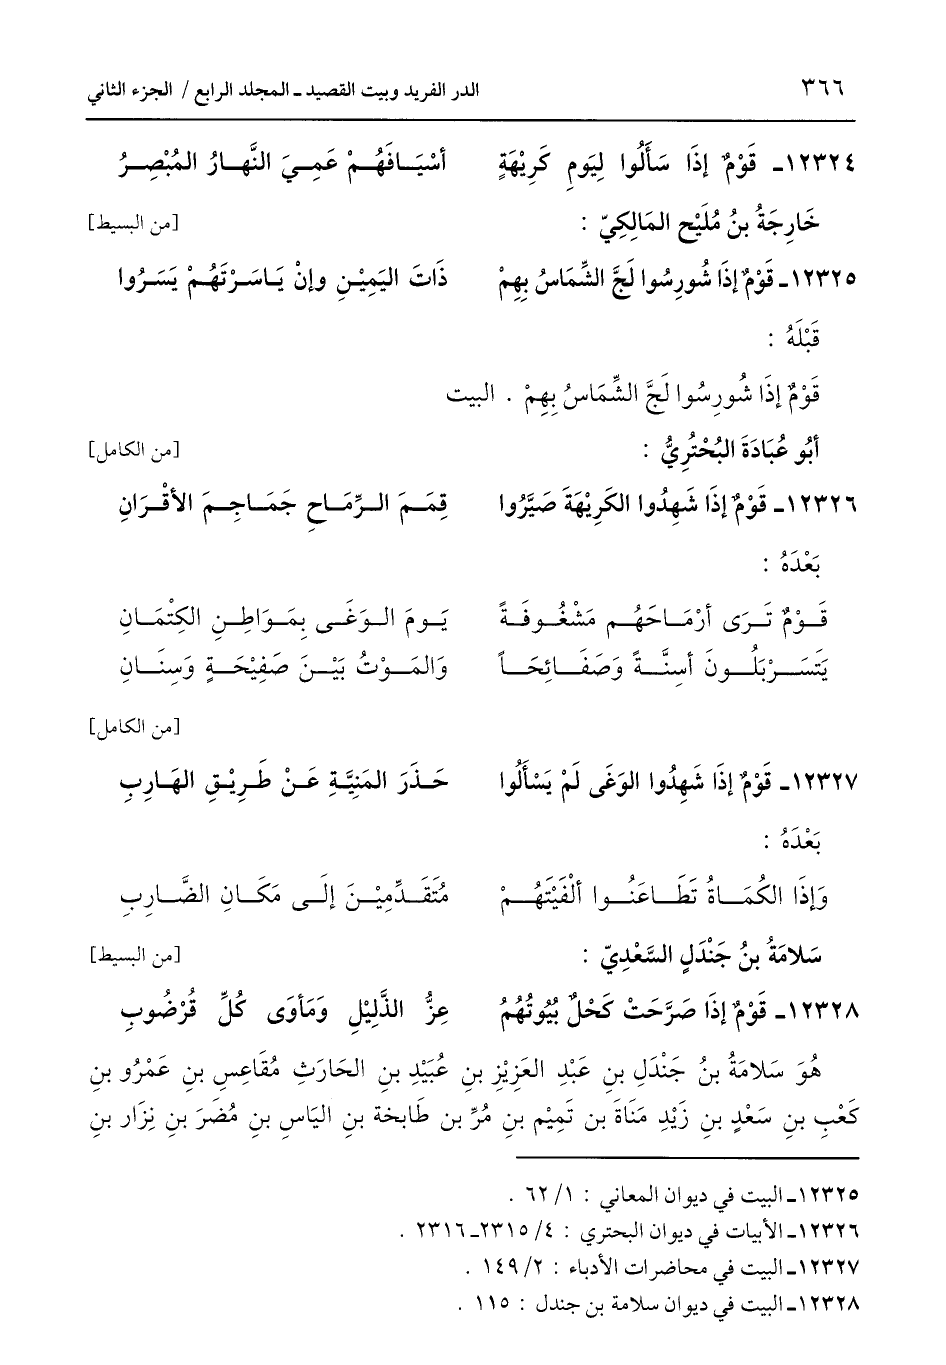 ٣٦٦ الدر الفريد وبيت القصيد ـ المجلد الرابع / الجزء الثاني
١٢٣٢٤ـ قَوْمٌ إذَا سَأَلُوا لِيَومِ كَرِيْهَةٍ أسْيَافَهُمْ عَمِيَ النَّهارُ المُبْصِرُ
خَارِجَةُ بنُ مُلَيْحِ المَالِكِيّ : [من البسيط]
١٢٣٢٥ـ قَوْمٌ إذَا شُورِسُوا لَجَّ الشِّمَاسُ بِهِمْ ذَاتَ اليَمِيْنِ وإنْ يَاسَرْتَهُمْ يَسَرُوا
قَبْلَهُ :
قَوْمٌ إذَا شُورِسُوا لَجَّ الشِّمَاسُ بِهِمْ . البيت
أبُو عُبَادَةَ البُحْتُرِيُّ : [من الكامل]
١٢٣٢٦ـ قَوْمٌ إذَا شَهِدُوا الكَرِيْهَةَ صَيَّرُوا قِمَمَ الرِّمَاحِ جَمَاجِمَ الأقْرَانِ
بَعْدَهُ :
قَوْمٌ تَرَى أرْمَاحَهُم مَشْغُوفَةً يَومَ الوَغَى بِمَوَاطِنِ الكِتْمَانِ
يَتَسَرْبَلُونَ أسِنَّةً وَصَفَائِحَاً وَالمَوْتُ بَيْنَ صَفِيْحَةٍ وَسِنَانِ
[من الكامل]
١٢٣٢٧ـ قَوْمٌ إذَا شَهِدُوا الوَغَى لَمْ يَسْألُوا حَذَرَ المَنِيَّةِ عَنْ طَرِيْقِ الهَارِبِ
بَعْدَهُ :
وَإذَا الكُمَاةُ تَطَاعَنُوا ألْفَيْتَهُمْ مُتَقَدِّمِيْنَ إلَى مَكَانِ الضَّارِبِ
سَلامَةُ بنُ جَنْدَلٍ السَّعْدِيّ : [من البسيط]
١٢٣٢٨ـ قَوْمٌ إذَا صَرَّحَتْ كَحْلٌ بُيُوتُهُمُ عِزُّ الذَّلِيْلِ وَمَأوَى كُلِّ قُرْضُوبِ
هُوَ سَلامَةُ بنُ جَنْدَلِ بنِ عَبْدِ العَزِيْزِ بنِ عُبَيْدِ بنِ الحَارَثِ مُقَاعِسِ بنِ عَمْرُو بنِ
كَعْبِ بنِ سَعْدٍ بنِ زَيْدِ مَنَاةَ بن تَمِيْمِ بنِ مُرِّ بن طَابخة بنِ اليَاسِ بنِ مُضَرَ بنِ نِزَار بنِ
١٢٣٢٥ـ البيت في ديوان المعاني : ١/ ٦٢ .
١٢٣٢٦ـ الأبيات في ديوان البحتري : ٤/ ٢٣١٥ـ ٢٣١٦ .
١٢٣٢٧ـ البيت في محاضرات الأدباء : ٢/ ١٤٩ .
١٢٣٢٨ـ البيت في ديوان سلامة بن جندل : ١١٥ .